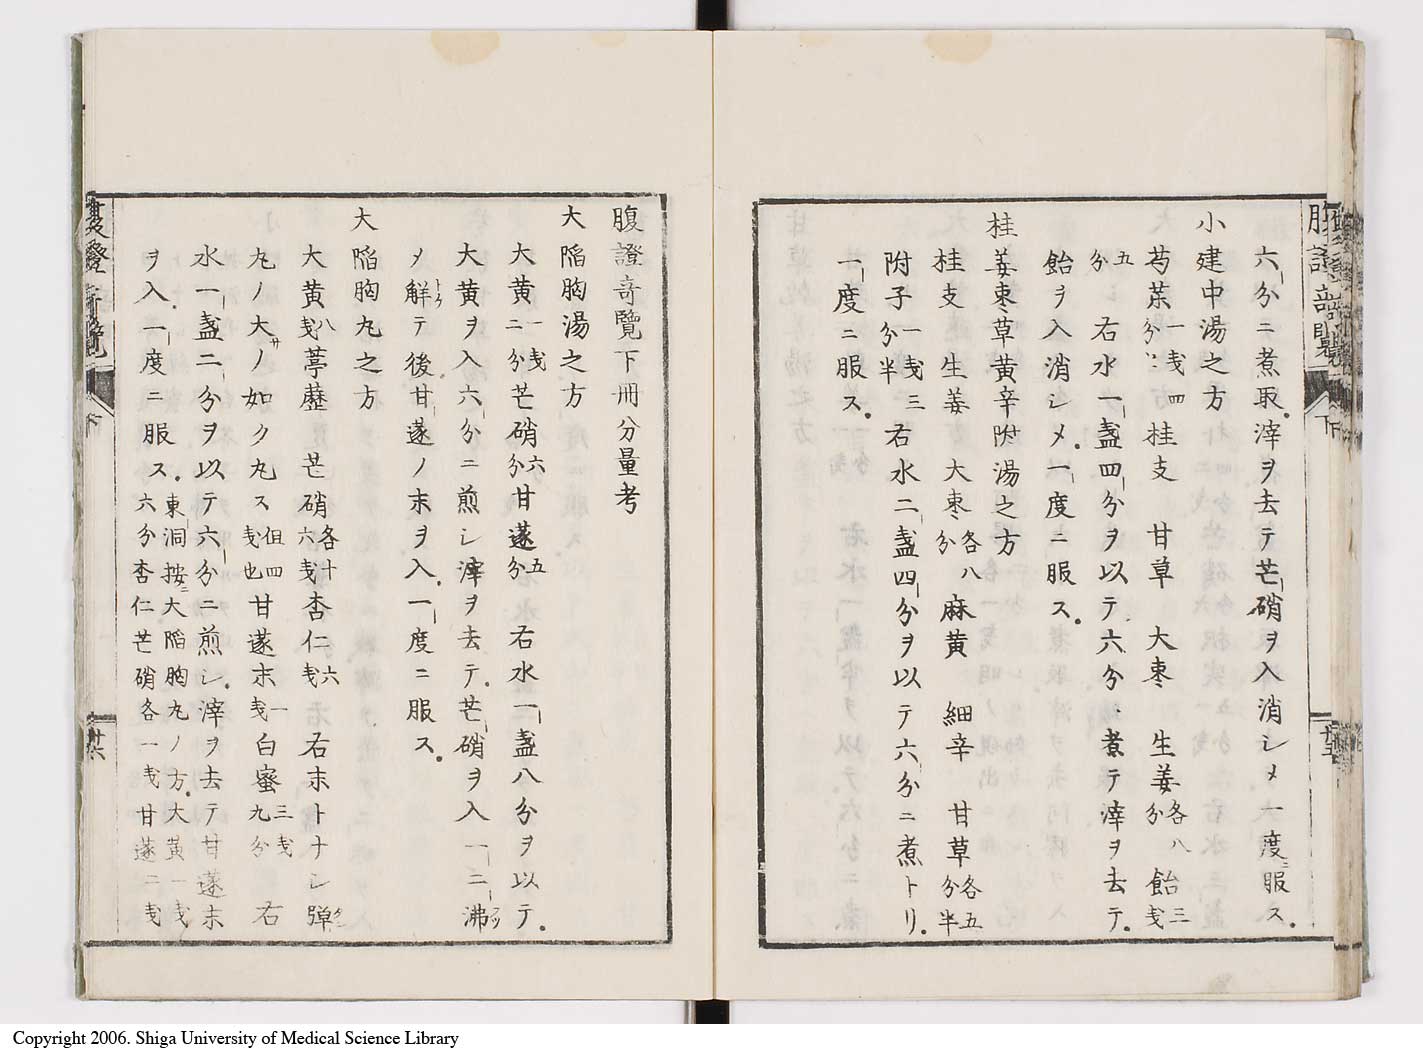 六分ニ煮取滓ヲ去テ芒硝ヲ入消シメ一度ニ服ス
小建中湯之方
芍薬一戔四分 桂支 甘草 大棗 生姜各八分 飴三戔
五分 右水一盞四分ヲ以テ六分煮テ滓ヲ去テ
飴ヲ入消シメ一度ニ服ス
桂姜棗草黄辛附湯之方
桂支 生姜 大棗各八分 麻黄 細辛 甘草各五分半
附子一戔三分半 右水二盞四分ヲ以テ六分ニ煮トリ
一度ニ服ス
腹證奇覽下冊分量考
大陷胸湯之方
大黄一戔二分芒硝六分甘遂五分 右水一盞八分ヲ以テ
大黄ヲ入六分ニ煎シ滓ヲ去テ芒硝ヲ入一二沸
メ解テ後甘遂ノ末ヲ入一度ニ服ス
大陷胸丸之方
大黄八戔葶藶 芒硝各十六戔杏仁六戔 右末トナシ弾
丸ノ大サノ如ク丸ス但四戔也甘遂末一戔白蜜三戔九分 右
水一盞二分ヲ以テ六分ニ煎シ滓ヲ去テ甘遂末
ヲ入一度ニ服ス 東洞按ニ大陷胸丸ノ方大黄一戔
六分杏仁芒硝各一戔甘遂二戔
腹證奇覽
下
廿六
Copyright 2006. Shiga University of Medical Science Library